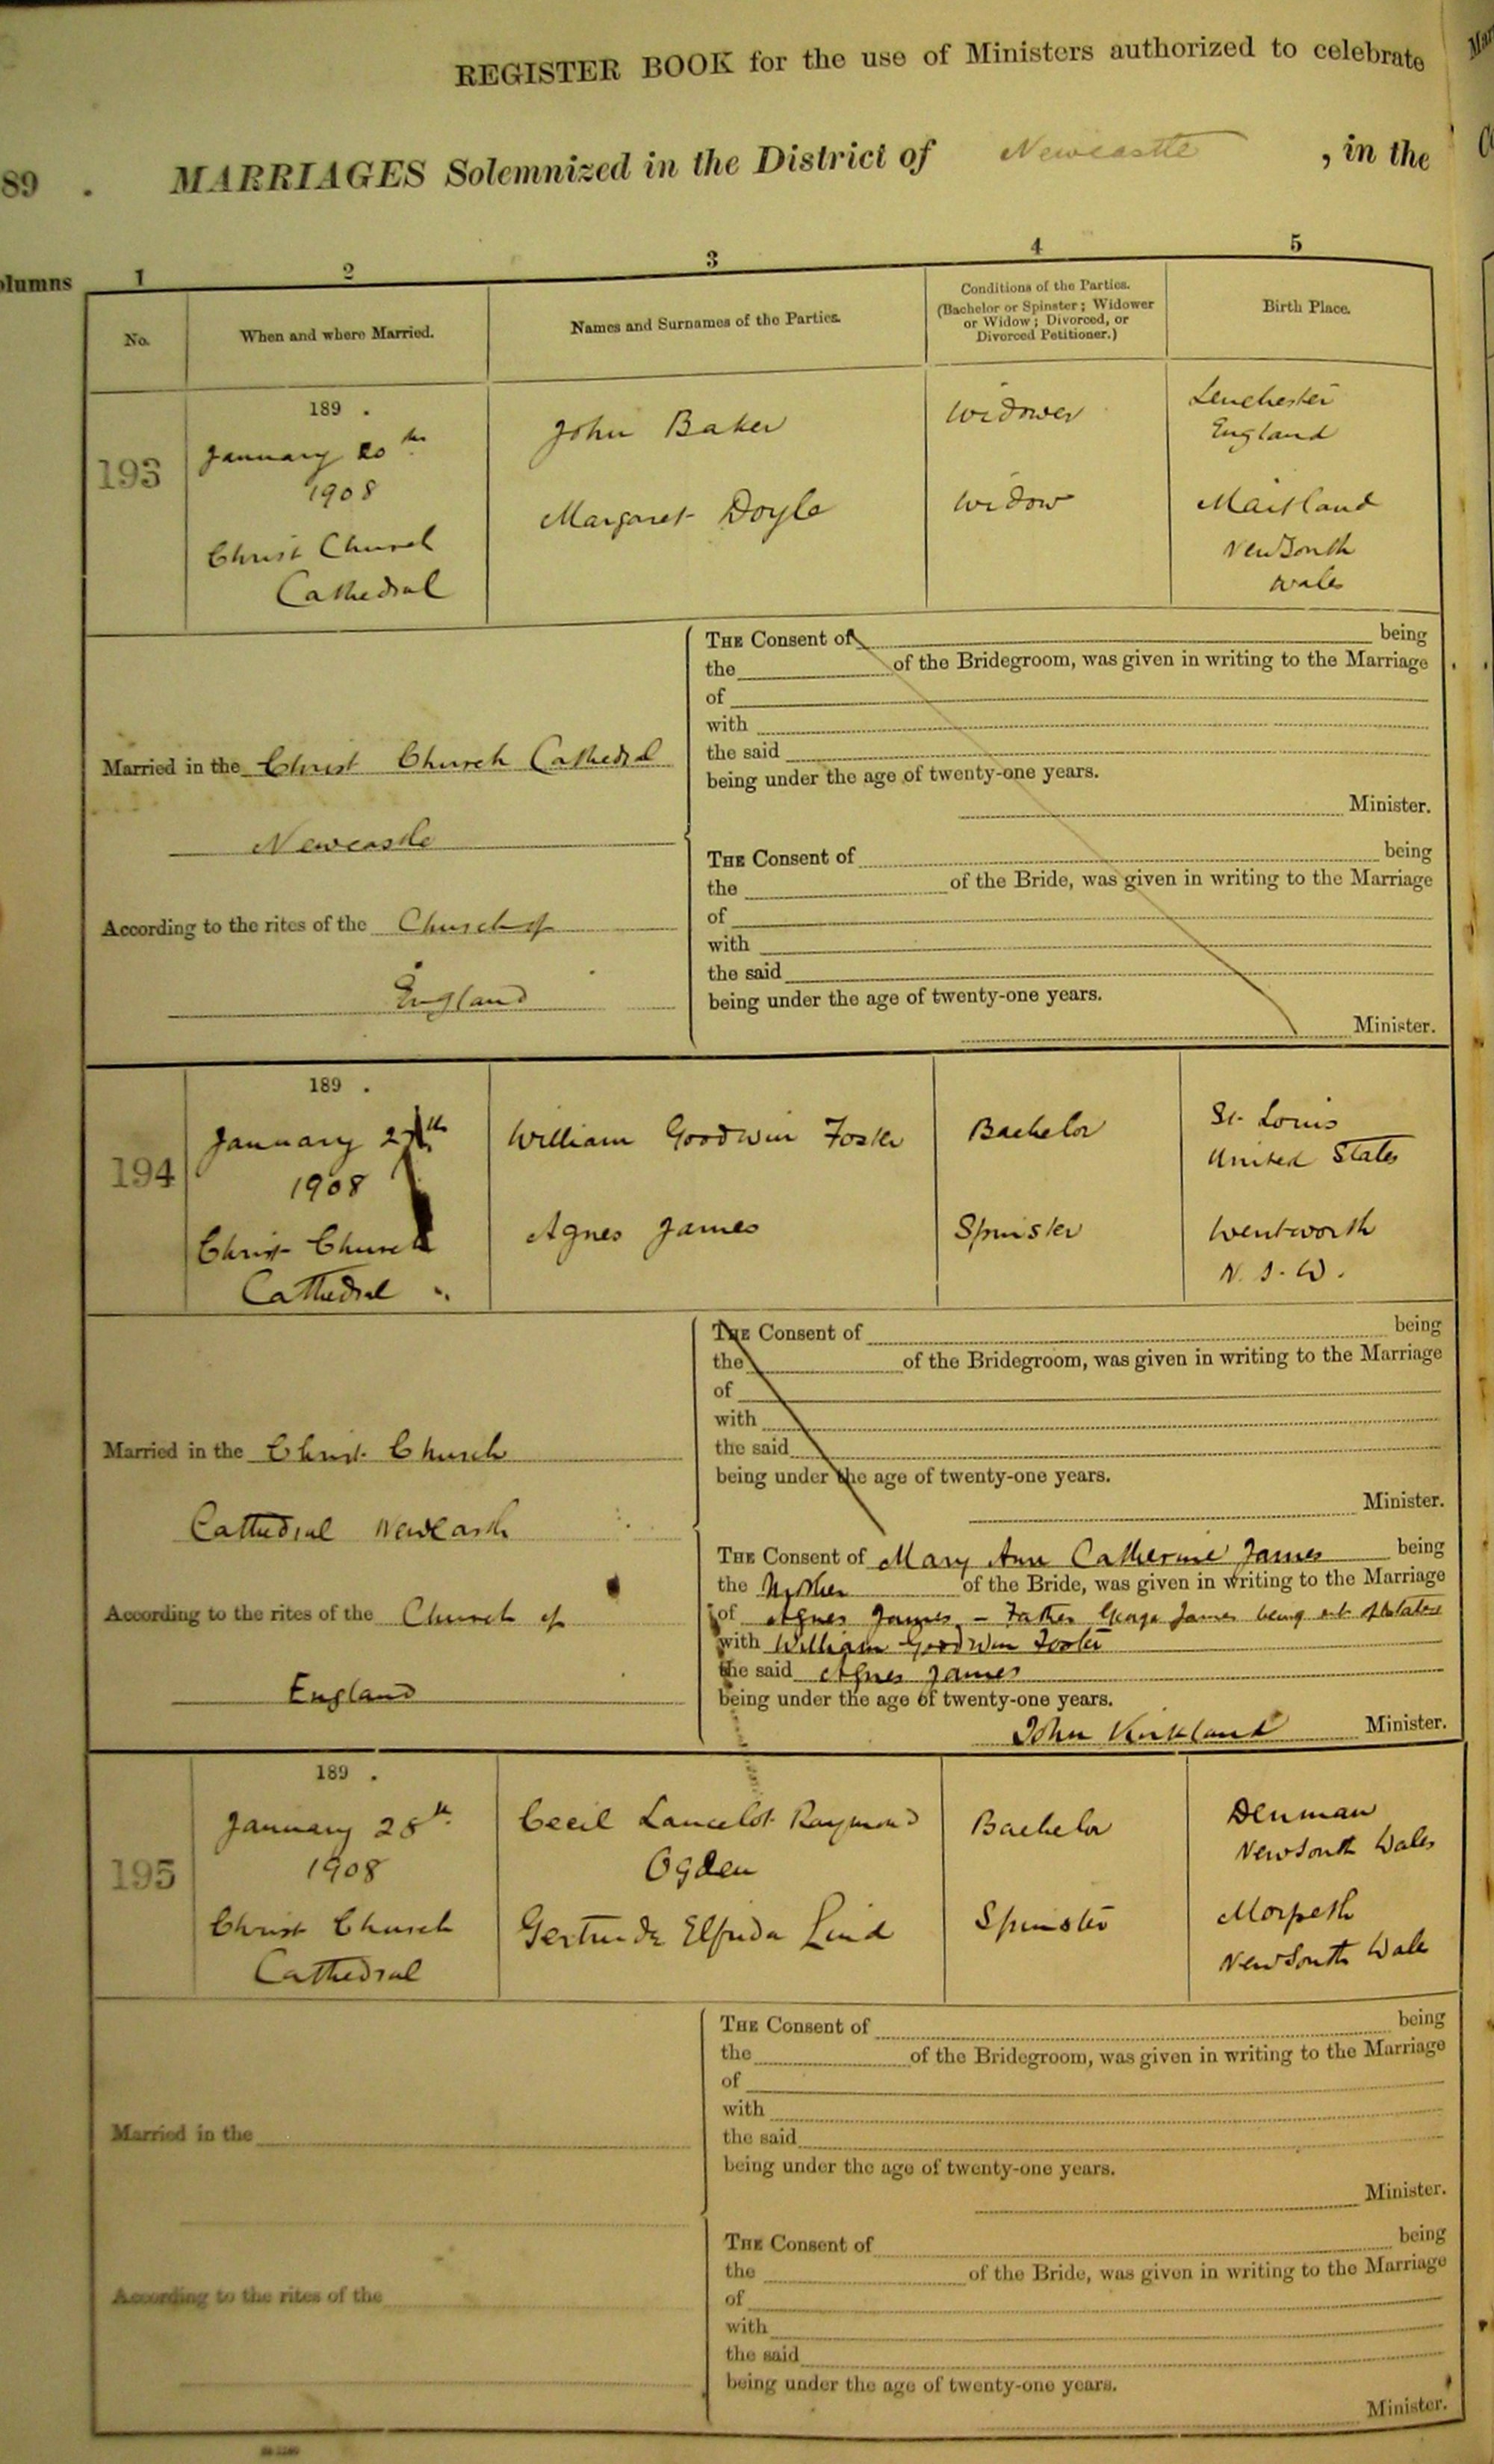 REGISTER BOOK for the use of Ministers authorized to celebrate
89 . MARRIAGES Solemnized in the District of Newcastle , in the
lumns 1 2 3 4 5
No. When and where Married. Names and Surnames of the Parties. Conditions of the Parties. (Bachelor or Spinster; Widower or Widow; Divorced, or Divorced Petitioner.) Birth Place.
189 .
193
January 20th
1908
Christ Church
Cathedral
John Baker
Widower
England
Margaret Doyle
Widow
Maitland
New South
Wales
Married in the Christ Church Cathedral
Newcastle
According to the rites of the Church of
England
THE Consent of being
the of the Bridegroom, was given in writing to the Marriage
of
with
the said
being under the age of twenty-one years.
Minister.
THE Consent of being
the of the Bride, was given in writing to the Marriage
of
with
the said
being under the age of twenty-one years.
Minister.
189 .
194
January
1908
Christ Church
Cathedral
William Goodwin Foster
Bachelor
St. Louis
United States
Agnes James
Spinster
Wentworth
N. S. W.
Married in the Christ Church
Cathedral Newcastle
According to the rites of the Church of
England
THE Consent of being
the of the Bridegroom, was given in writing to the Marriage
of
with
the said
being under the age of twenty-one years.
Minister.
THE Consent of Mary Ann Catherine James being
the Mother of the Bride, was given in writing to the Marriage
of Agnes James – Father George James being out of State
with William Goodwin Foster
the said Agnes James
being under the age of twenty-one years.
John Kirkland Minister.
189 .
195
January 28th
1908
Christ Church
Cathedral
Cecil Lancelot Raymond
Ogden
Bachelor
Denman
New South Wales
Gertrude Elfrida Lind
Spinster
Morpeth
New South Wale
Married in the
According to the rites of the
THE Consent of being
the of the Bridegroom, was given in writing to the Marriage
of
with
the said
being under the age of twenty-one years.
Minister.
THE Consent of being
the of the Bride, was given in writing to the Marriage
of
with
the said
being under the age of twenty-one years.
Minister.